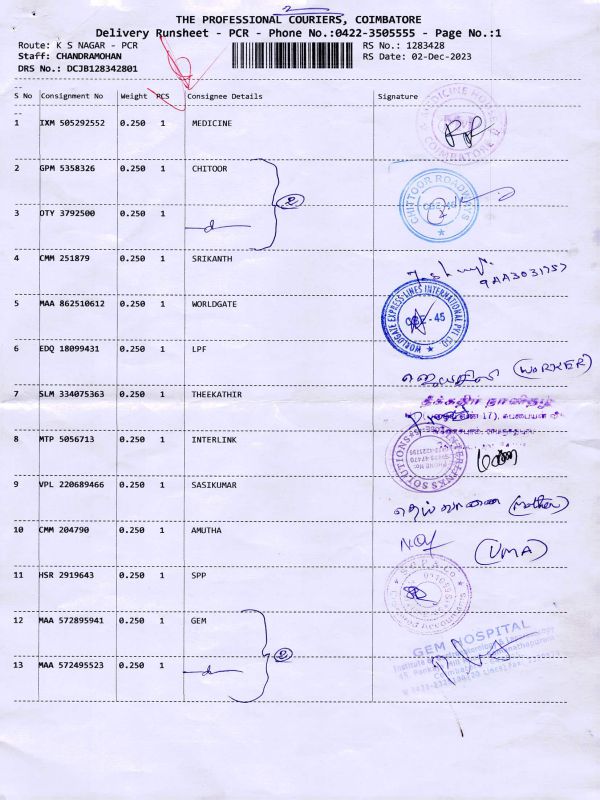 THE PROFESSIONAL COURIERS, COIMBATORE
Delivery Runsheet - PCR - Phone No.:0422-3505555 - Page No.:1
Route: K S NAGAR - PCR
RS No.: 1283428
Staff: CHANDRAMOHAN
RS Date: 02-Dec-2023
DRS No.: DCJB128342801
S No Consignment No Weight PCS Consignee Details Signature
1 IXM 505292552 0.250 1 MEDICINE
MEDICINE HOUSE
COIMBATORE
2 GPM 5358326 0.250 1 CHITOOR
CHITTOOR ROADWAYS
CBE-45
3 OTY 3792500 0.250 1
4 CMM 251879 0.250 1 SRIKANTH
5 MAA 862510612 0.250 1 WORLDGATE
WORLDGATE EXPRESS LINES INTERNATIONAL PVT. LTD.
CBE-45
6 EDQ 18099431 0.250 1 LPF
(WORKER)
7 SLM 334075363 0.250 1 THEEKATHIR
தீக்கதிர் நாளிதழ்
8 MTP 5056713 0.250 1 INTERLINK
INTERLINKS SOLUTIONS
PHONE No:
9 VPL 220689466 0.250 1 SASIKUMAR
(Mother)
10 CMM 204790 0.250 1 AMUTHA
(UMA)
11 HSR 2919643 0.250 1 SPP
12 MAA 572895941 0.250 1 GEM
GEM HOSPITAL
13 MAA 572495523 0.250 1